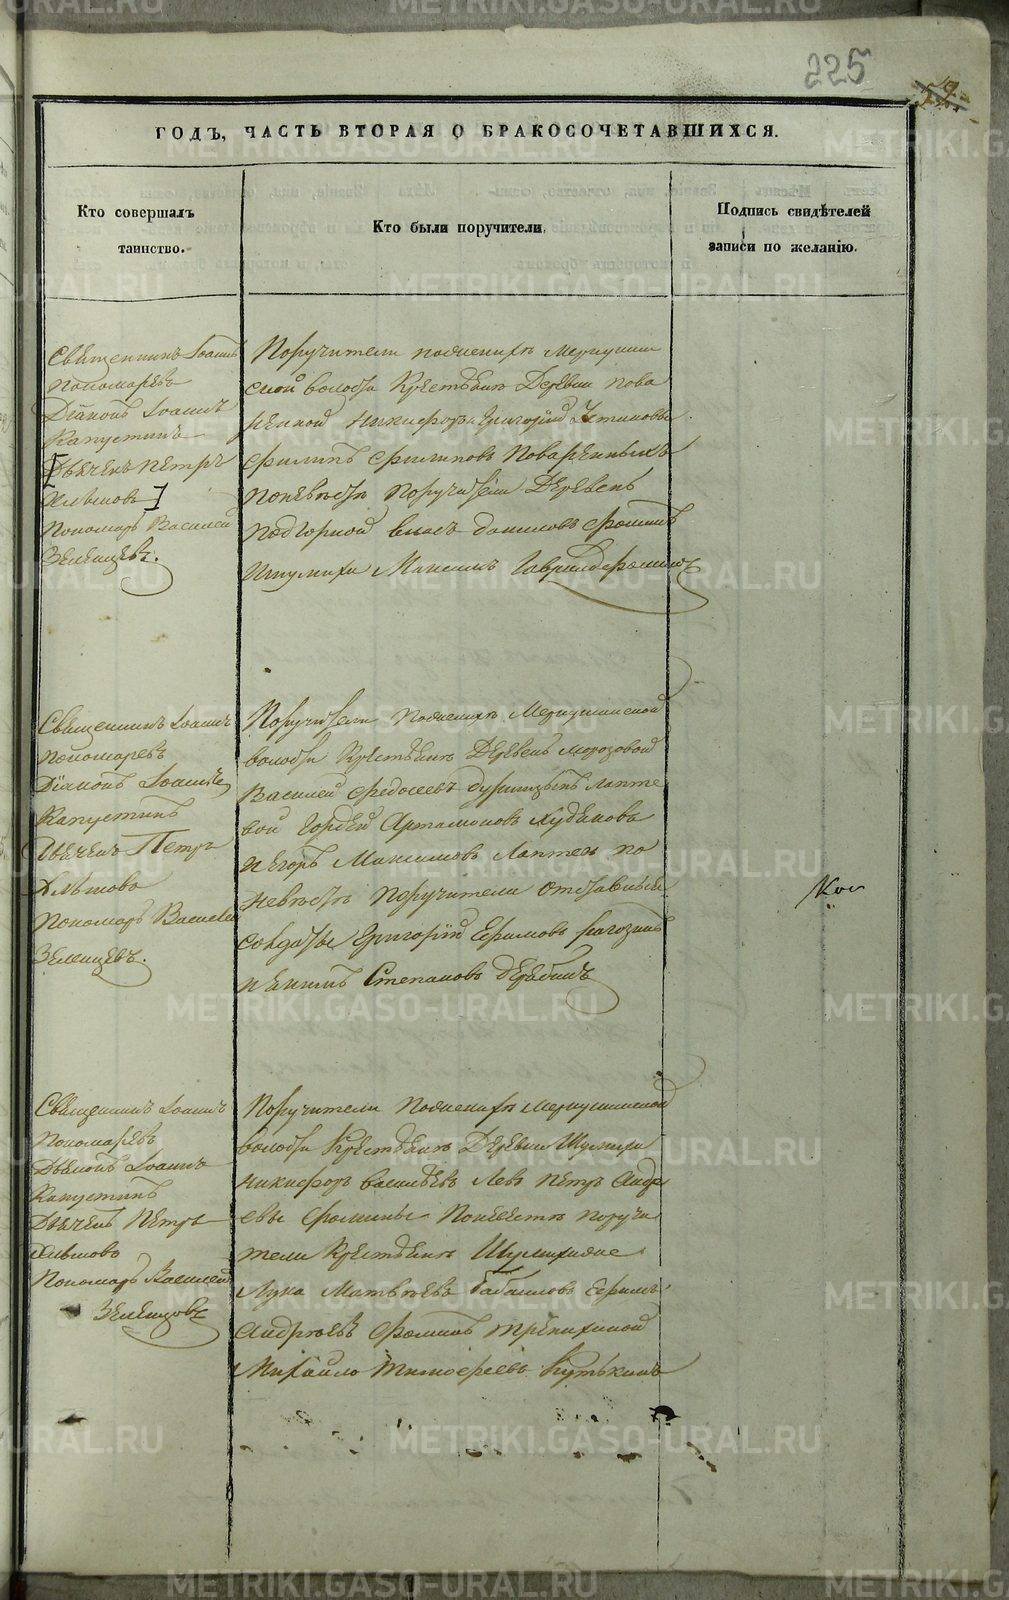 225
19.
ГОДЪ, ЧАСТЬ ВТОРАЯ О БРАКОСОЧЕТАВШИХСЯ.
Кто совершалъ
таинство.
Кто были поручители.
Подпись свидѣтелей
записи по желанію.
Священникъ Іоаннъ
Пономаревъ
Діаконъ Іоаннъ
Капустинъ
Дьячекъ Петръ
Хлыновъ
Пономарь Василей
Зеленцовъ.
Поручители поженихѣ Меркушин
ской волости Крестьяне Деревни Пова
ренной Никифоръ Григорій Устиновы
Филипъ Филиповъ Поваренныхъ
Поневѣстѣ Поручители Деревень
Подгорной Власъ Даниловъ Фоминъ
Шумихи Максимъ Гаврилъ Фоминъ
Священникъ Іоаннъ
Пономаревъ
Діаконъ Іоаннъ
Капустинъ
Дьячекъ Петръ
Хлыновъ
Пономарь Василей
Зеленцовъ.
Поручители Поженихѣ Меркушинской
волости Крестьяне Деревень Морозовой
Василей Федосеевъ Лапте
вой Гордей Артамоновъ Худяковъ
и Егоръ Максимовъ Лаптевъ по
невѣстѣ Поручители Отставные
Солдаты Григорій Ефимовъ Рагозинъ
Степановъ
Священникъ Іоаннъ
Пономаревъ
Дьяконъ Іоаннъ
Капустинъ
Дьячекъ Петръ
Хлыновъ
Пономарь Василей
Зеленцовъ
Поручители Поженихѣ Меркушинской
волости Крестьяне Деревни Шумихи
Никифоръ Васильевъ Левъ Петръ Андре
евы Фомины Поневестѣ поручи
тели Крестьяне Шумихине
Лука Матвѣевъ Ефимъ
Андрѣевъ Фоминъ Трѣнихиной
Михайло Тимофеевъ Путькинъ